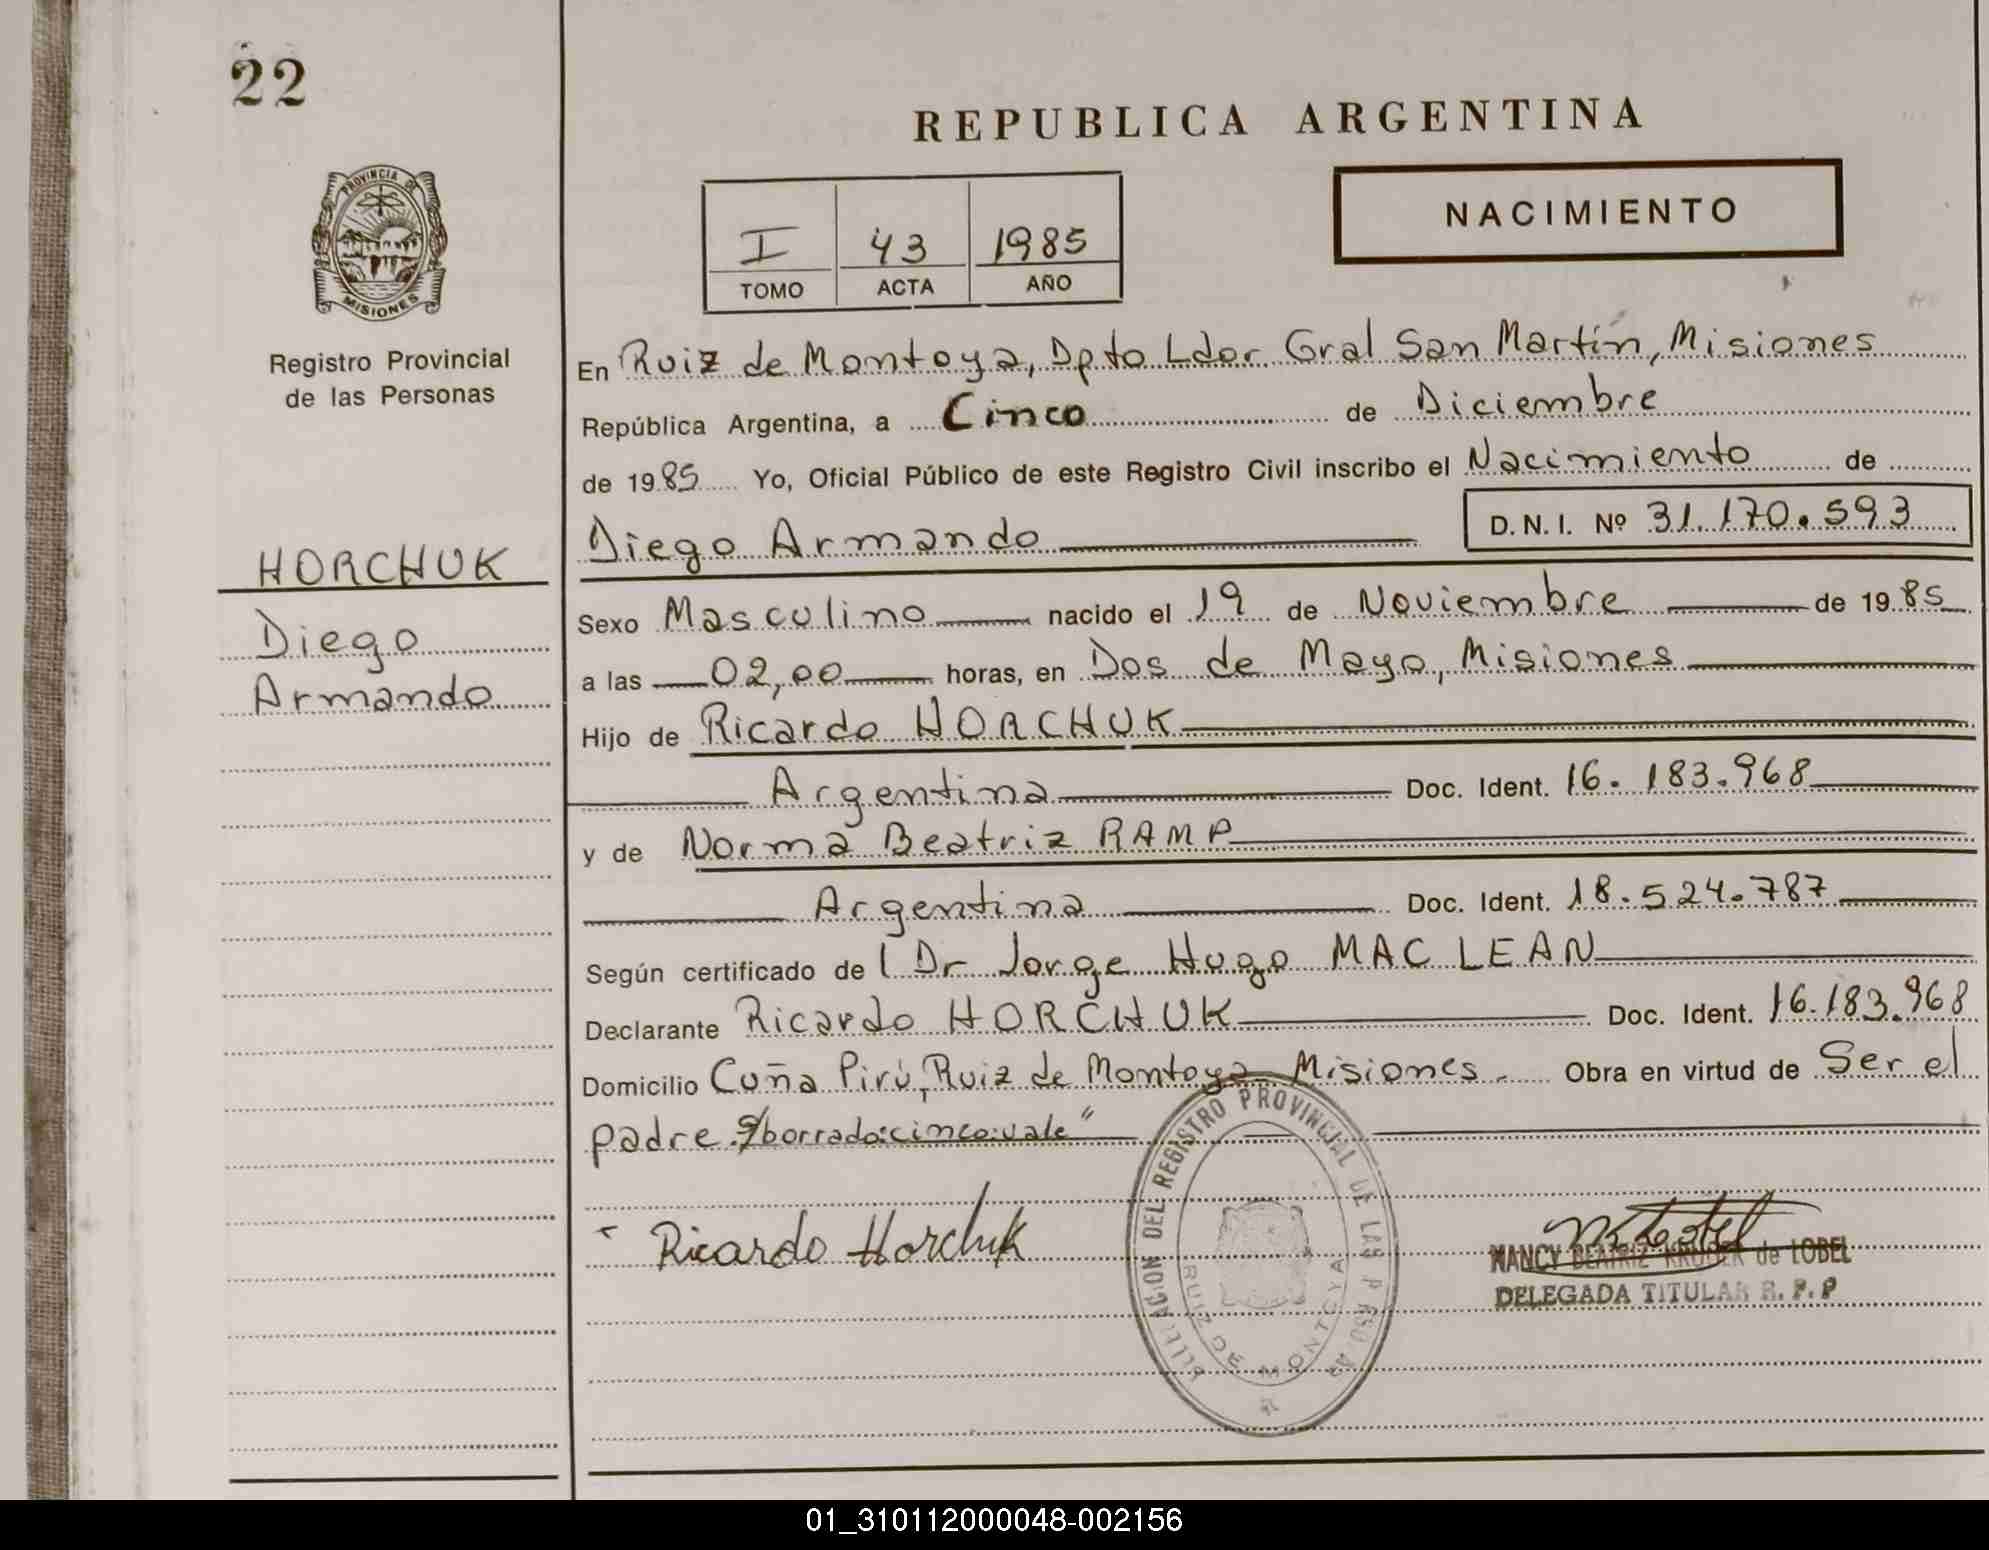 22
REPUBLICA ARGENTINA
PROVINCIA DE
MISIONES
NACIMIENTO
I 43 1985
TOMO ACTA AÑO
Registro Provincial
de las Personas
HORCHUK
Diego
Armando
En Ruiz de Montoya, Dpto Ldor Gral San Martín, Misiones
República Argentina, a Cinco de Diciembre
de 1985 Yo, Oficial Público de este Registro Civil inscribo el Nacimiento de
Diego Armando D. N. I. Nº 31.170.593
Sexo Masculino nacido el 19 de Noviembre de 1985
a las 02,00 horas, en Dos de Mayo, Misiones
Hijo de Ricardo HORCHUK
Argentina Doc. Ident. 16.183.968
y de Norma Beatriz RAMP
Argentina Doc. Ident. 18.524.787
Según certificado de Dr Jorge Hugo MAC LEAN
Declarante Ricardo HORCHUK Doc. Ident. 16.183.968
Domicilio Cuña Pirú, Ruiz de Montoya Misiones. Obra en virtud de Ser el
padre. S/borrado:cinco:vale"
Ricardo Horchuk
DELEGACION DEL REGISTRO PROVINCIAL DE LAS PERSONAS
RUIZ DE MONTOYA
NANCY BEATRIZ de LOBEL
DELEGADA TITULAR R. P. P
01_310112000048-002156